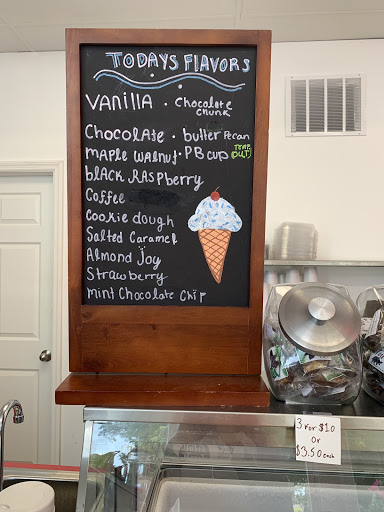 TODAYS FLAVORS
VANILLA · Chocolate
chunk
Chocolate · butter Pecan
MAPLE WALNUT · PB CUP TEMP OUT
bLACK RASPberry
Coffee
Cookie dough
Salted Caramel
Almond Joy
Strawberry
Mint Chocolate Chip
3 For $10
Or
$3.50 each